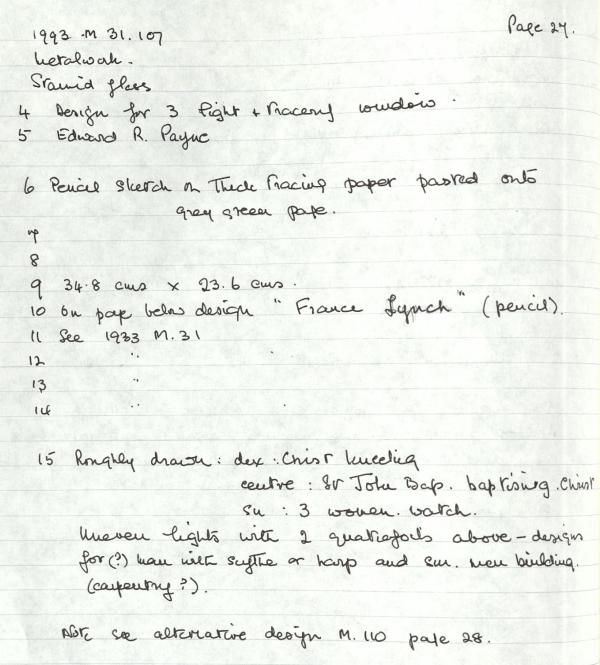 Page 27.
1993 M 31.107
Metalwork.
Stained glass
4 Design for 3 light + tracery window.
5 Edward R. Payne
6 Pencil sketch on Thick Tracing paper pasted onto
grey green page.
7
8
9 34.8 cms x 23.6 cms.
10 On page below design "France Lynch" (pencil).
11 See 1933 M.31
12 "
13 "
14 "
15 Roughly drawn: dex: Christ kneeling
centre: St John Bap. baptising Christ
sin: 3 women watch.
Uneven lights with 2 quatrefoils above - designs
for (?) man with scythe or harp and men building.
(carpentry?).
Note see alternative design M.110 page 28.